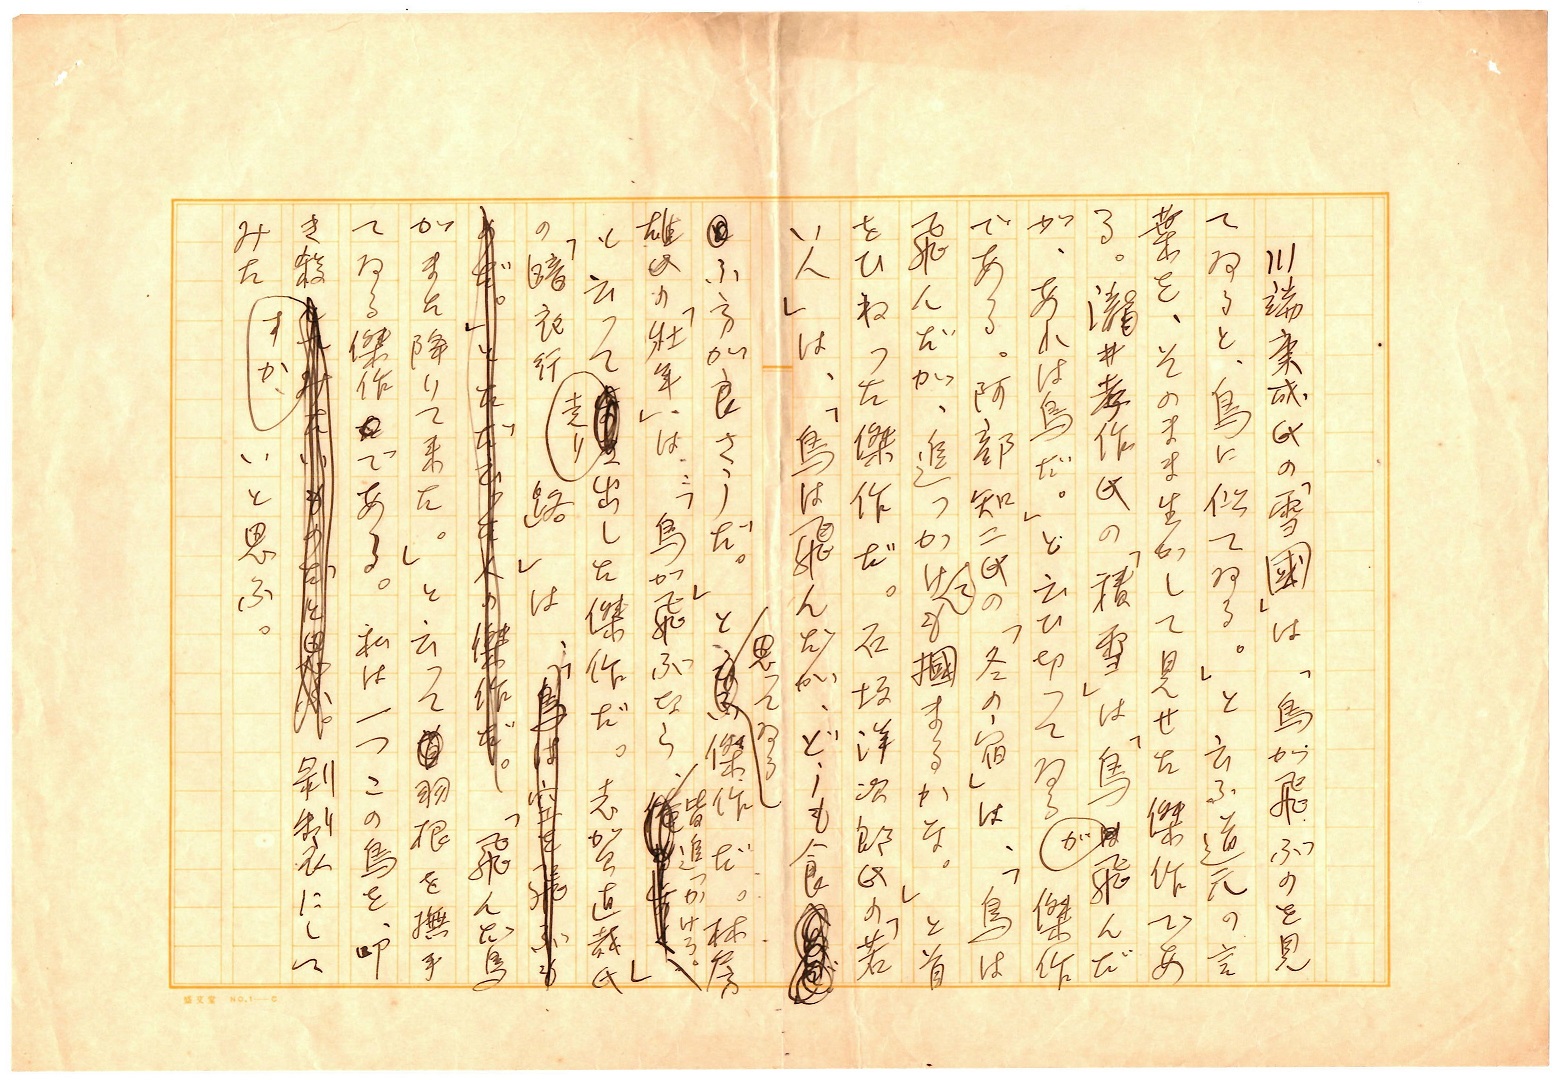 川端康成氏の「雪國」は「鳥が飛ぶのを見
てゐると、鳥に似てゐる。」と云ふ道元の言
葉を、そのまま生かして見せた傑作であ
る。瀧井孝作氏の「積雪」は「鳥飛んだ
が、あれは鳥だ。」と云ひ切つてゐるが傑作
である。阿部知二氏の「冬の宿」は、「鳥は
飛んだが、追つかけても掴まるかな。」と首
をひねつた傑作だ。石坂洋次郎氏の「若
い人」は、「鳥は飛んだが、どうも食
ふ方が良ささうだ。」と思つてゐる傑作だ。林房
雄氏の「壮年」は、「鳥が飛ぶなら、皆追つかけろ。」
と云つて走り出した傑作だ。志賀直哉氏
の「暗夜行路」は、
「飛んだ鳥
がまた降りて来た。」と云つて羽根を撫で
てゐる傑作である。私は一つこの鳥を、叩
き殺すか、剥製にして
みたいと思ふ。
盛文堂 NO.1-C